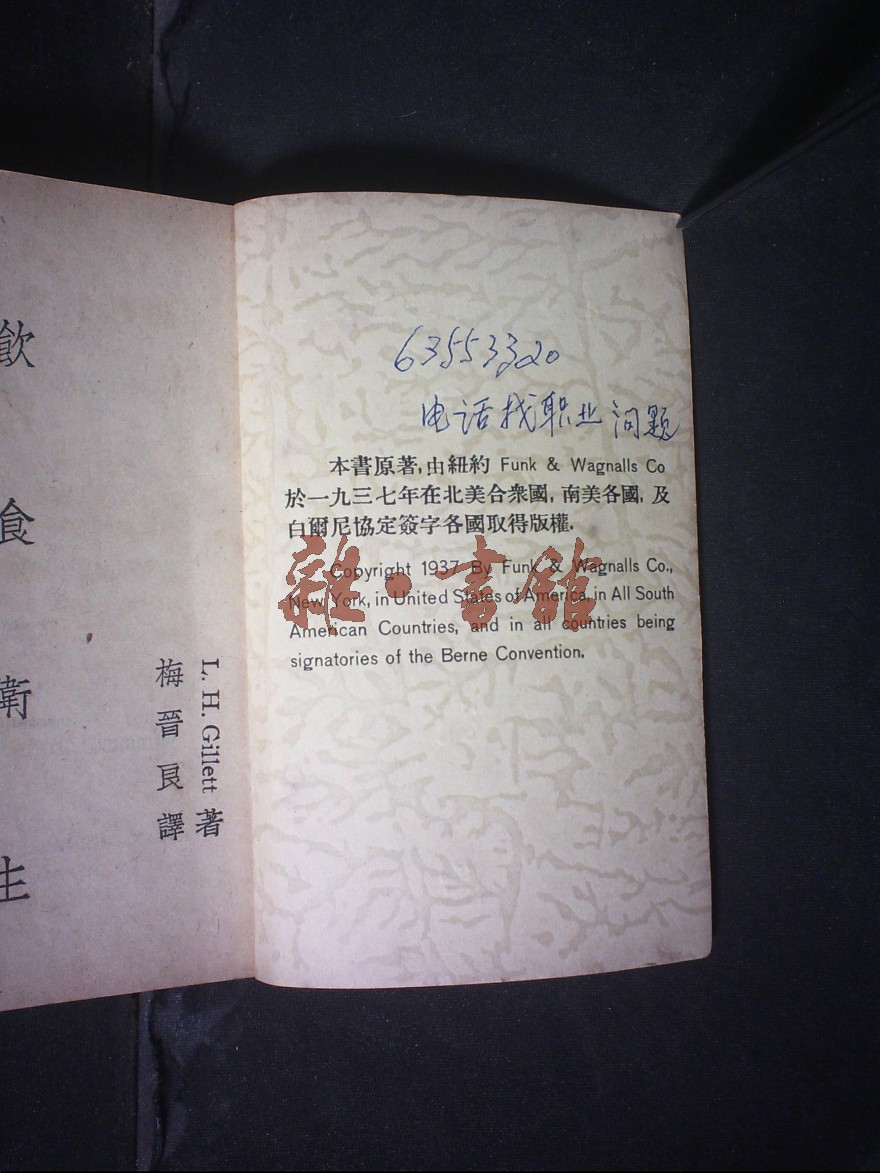 飲食衛生
L. H. Gillett 著
梅晉良譯
63553320
电话找职业问题
本書原著,由紐約 Funk & Wagnalls Co
於一九三七年在北美合衆國,南美各國,及
白爾尼協定簽字各國取得版權.
Copyright 1937 By Funk & Wagnalls Co.,
New York, in United States of America, in All South
American Countries, and in all countries being
signatories of the Berne Convention.
雜·書館